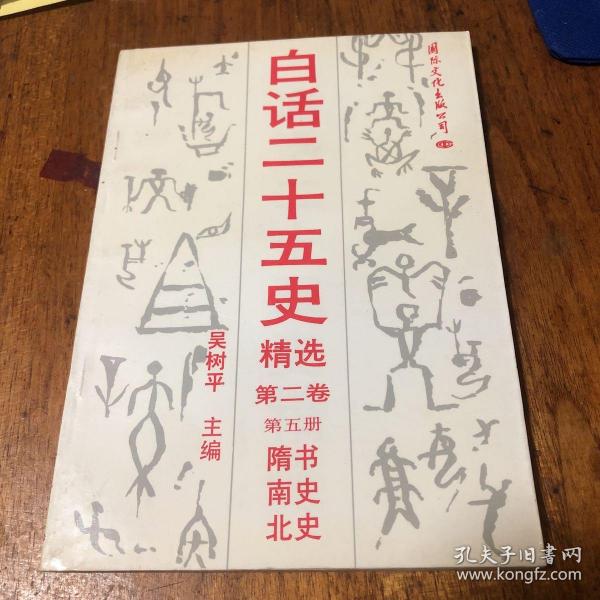 白话二十五史
精选
第二卷
第五册
隋书
南史
北史
吴树平 主编
国际文化出版公司
孔夫子旧书网
www.kongfz.com